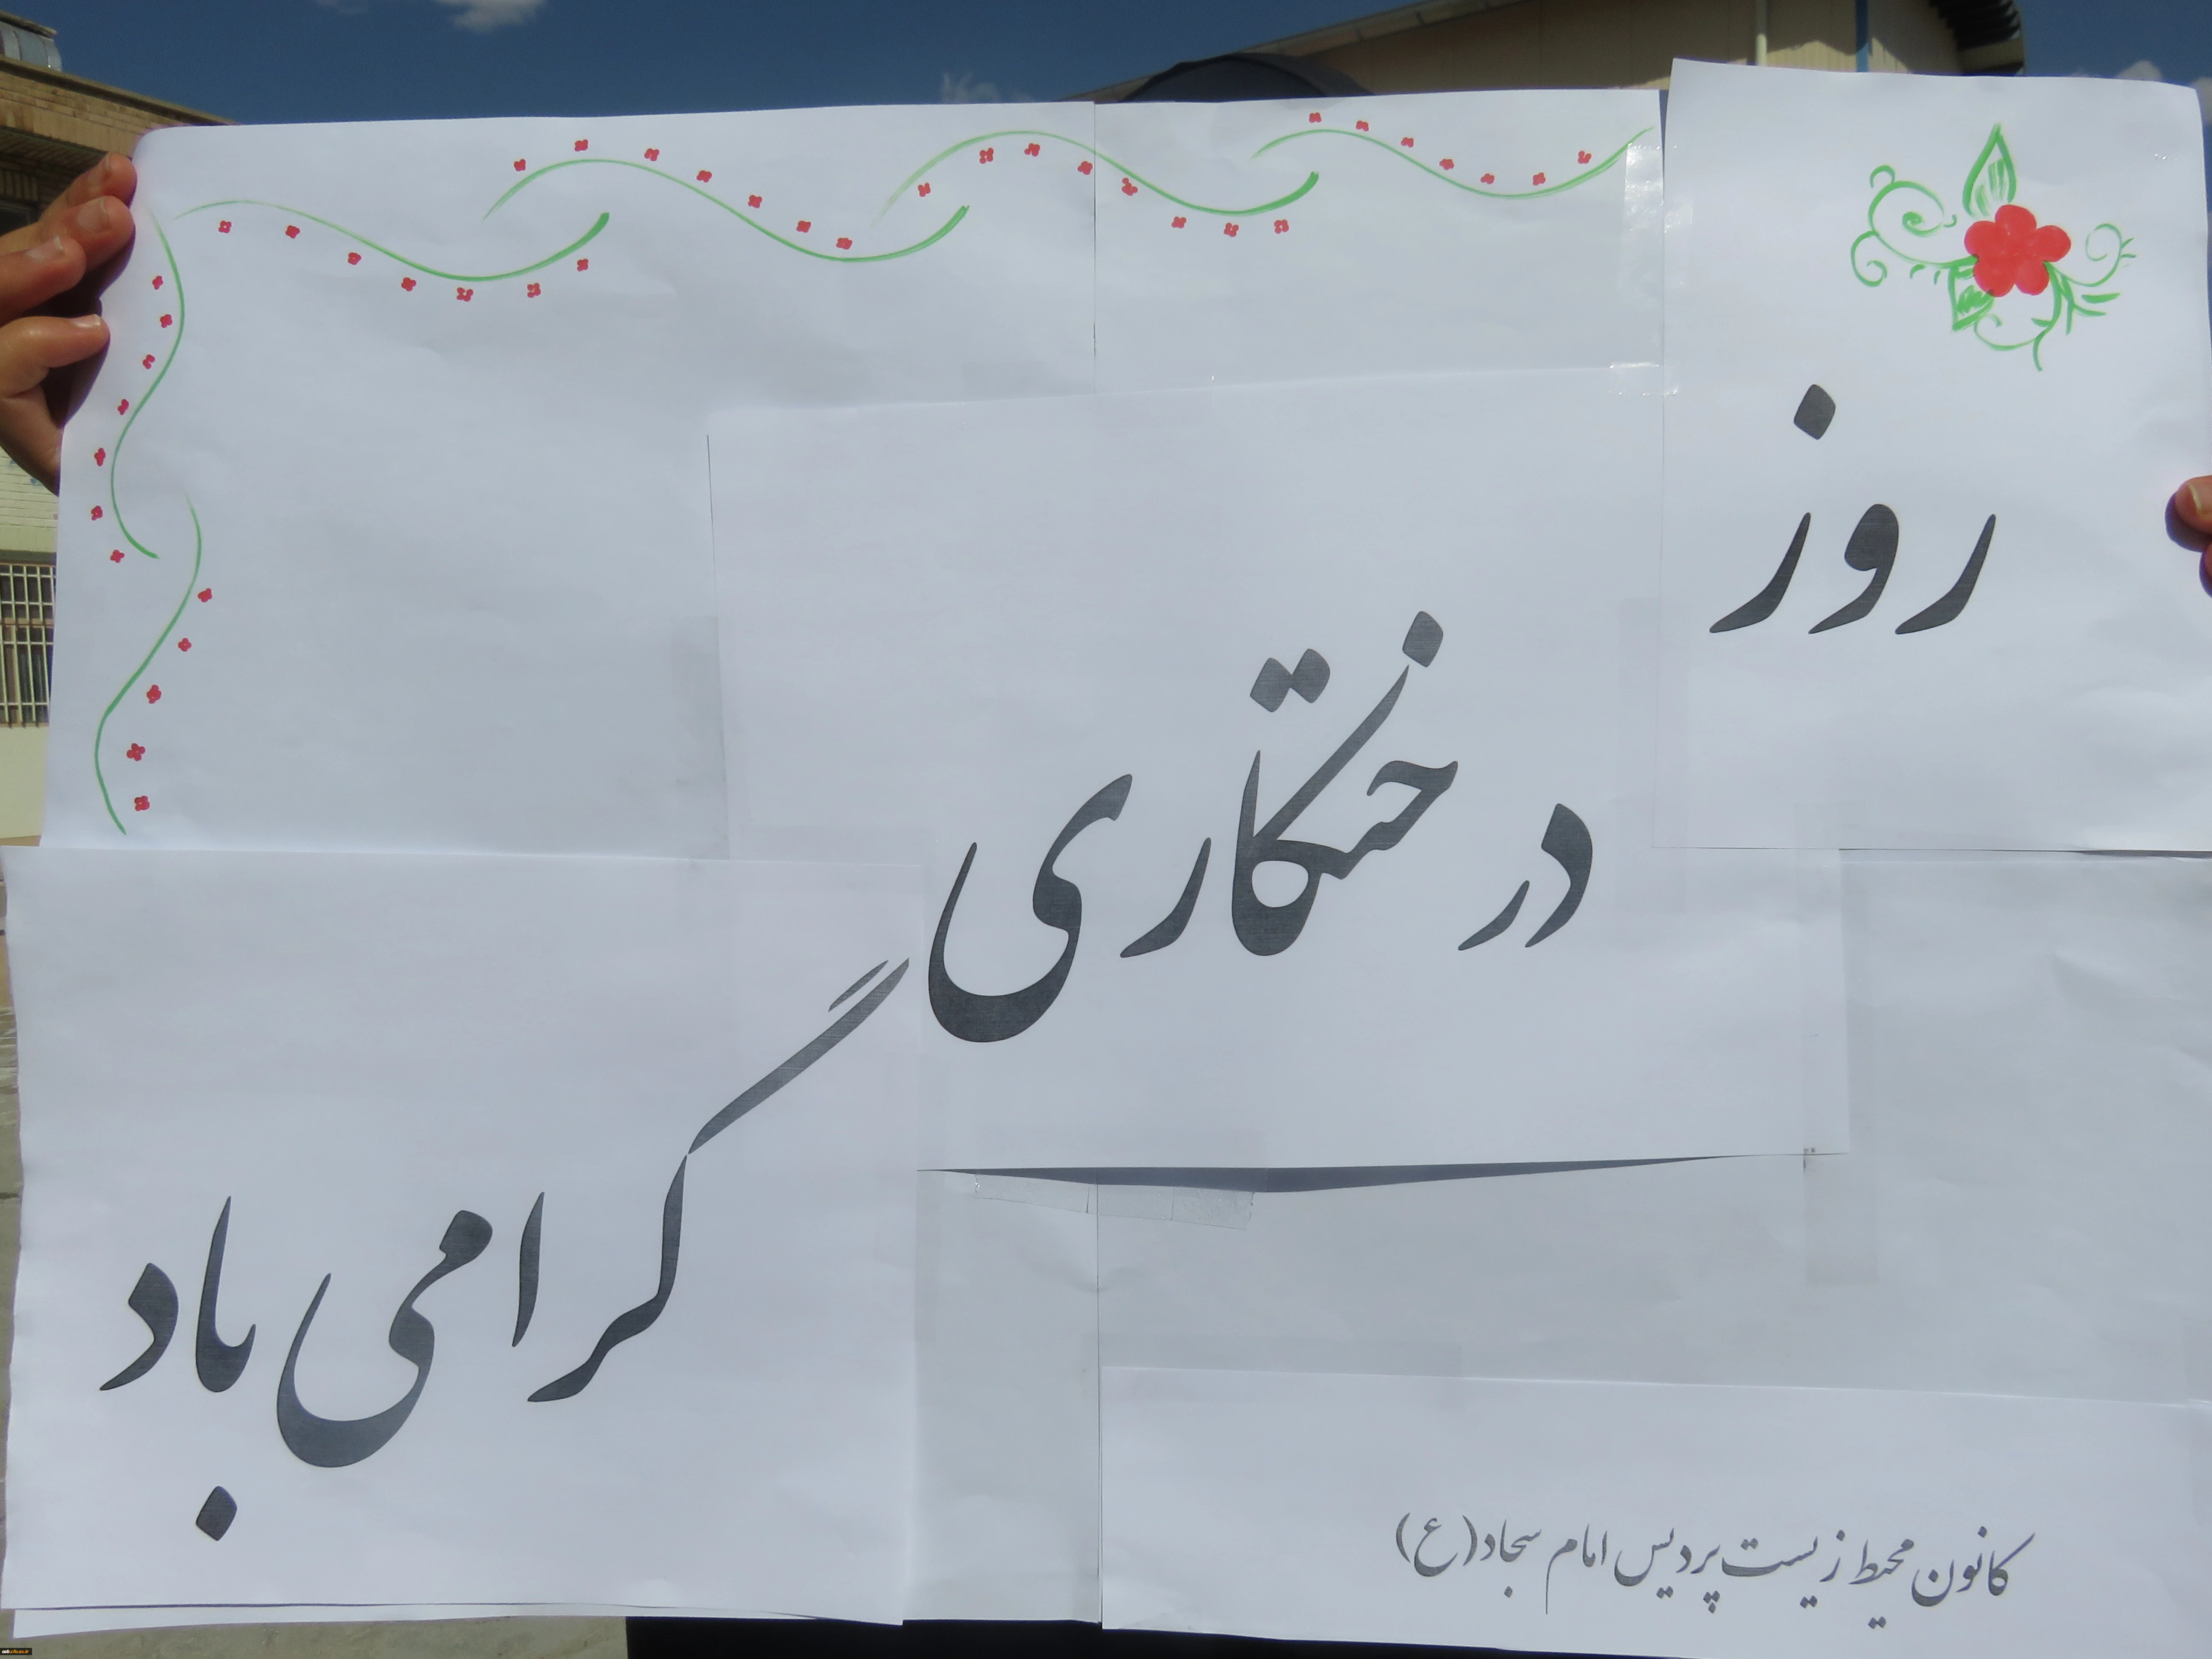 روز
درختکاری
گرامی باد
کانون محیط زیست پردیس امام سجاد(ع)